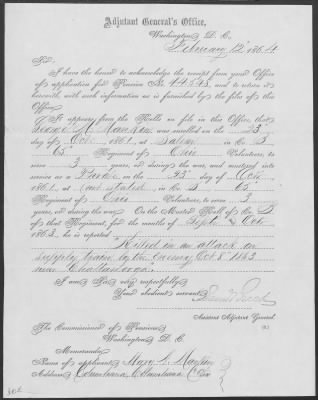 Adjutant General's Office,
Washington D. C.
February 12 1864
Sir:
I have the honor to acknowledge the receipt from your Office
of application for Pension No. 44548, and to return it
herewith, with such information as is furnished by the files of this
Office.
It appears from the Rolls on file in this Office, that
George was enrolled on the 23
day of Oct 1861, at in Co. B
65 Regiment of Ohio Volunteers, to
serve 3 years, or during the war, and mustered into
service as a Private on the day of
1861, at not stated in Co. B 65
Regiment of Ohio Volunteers, to serve 3
years, or during the war. On the Muster Roll of Co. B
of that Regiment, for the months of Sept & Oct
1863, he is reported "Killed in an attack on
supply train by the enemy Oct 8 1863
near Chattanooga"
I am, Sir, very respectfully,
Your obedient servant,
Assistant Adjutant General
The Commissioner of Pensions
Washington D. C.
Memoranda:
Name of applicant Mary
Address